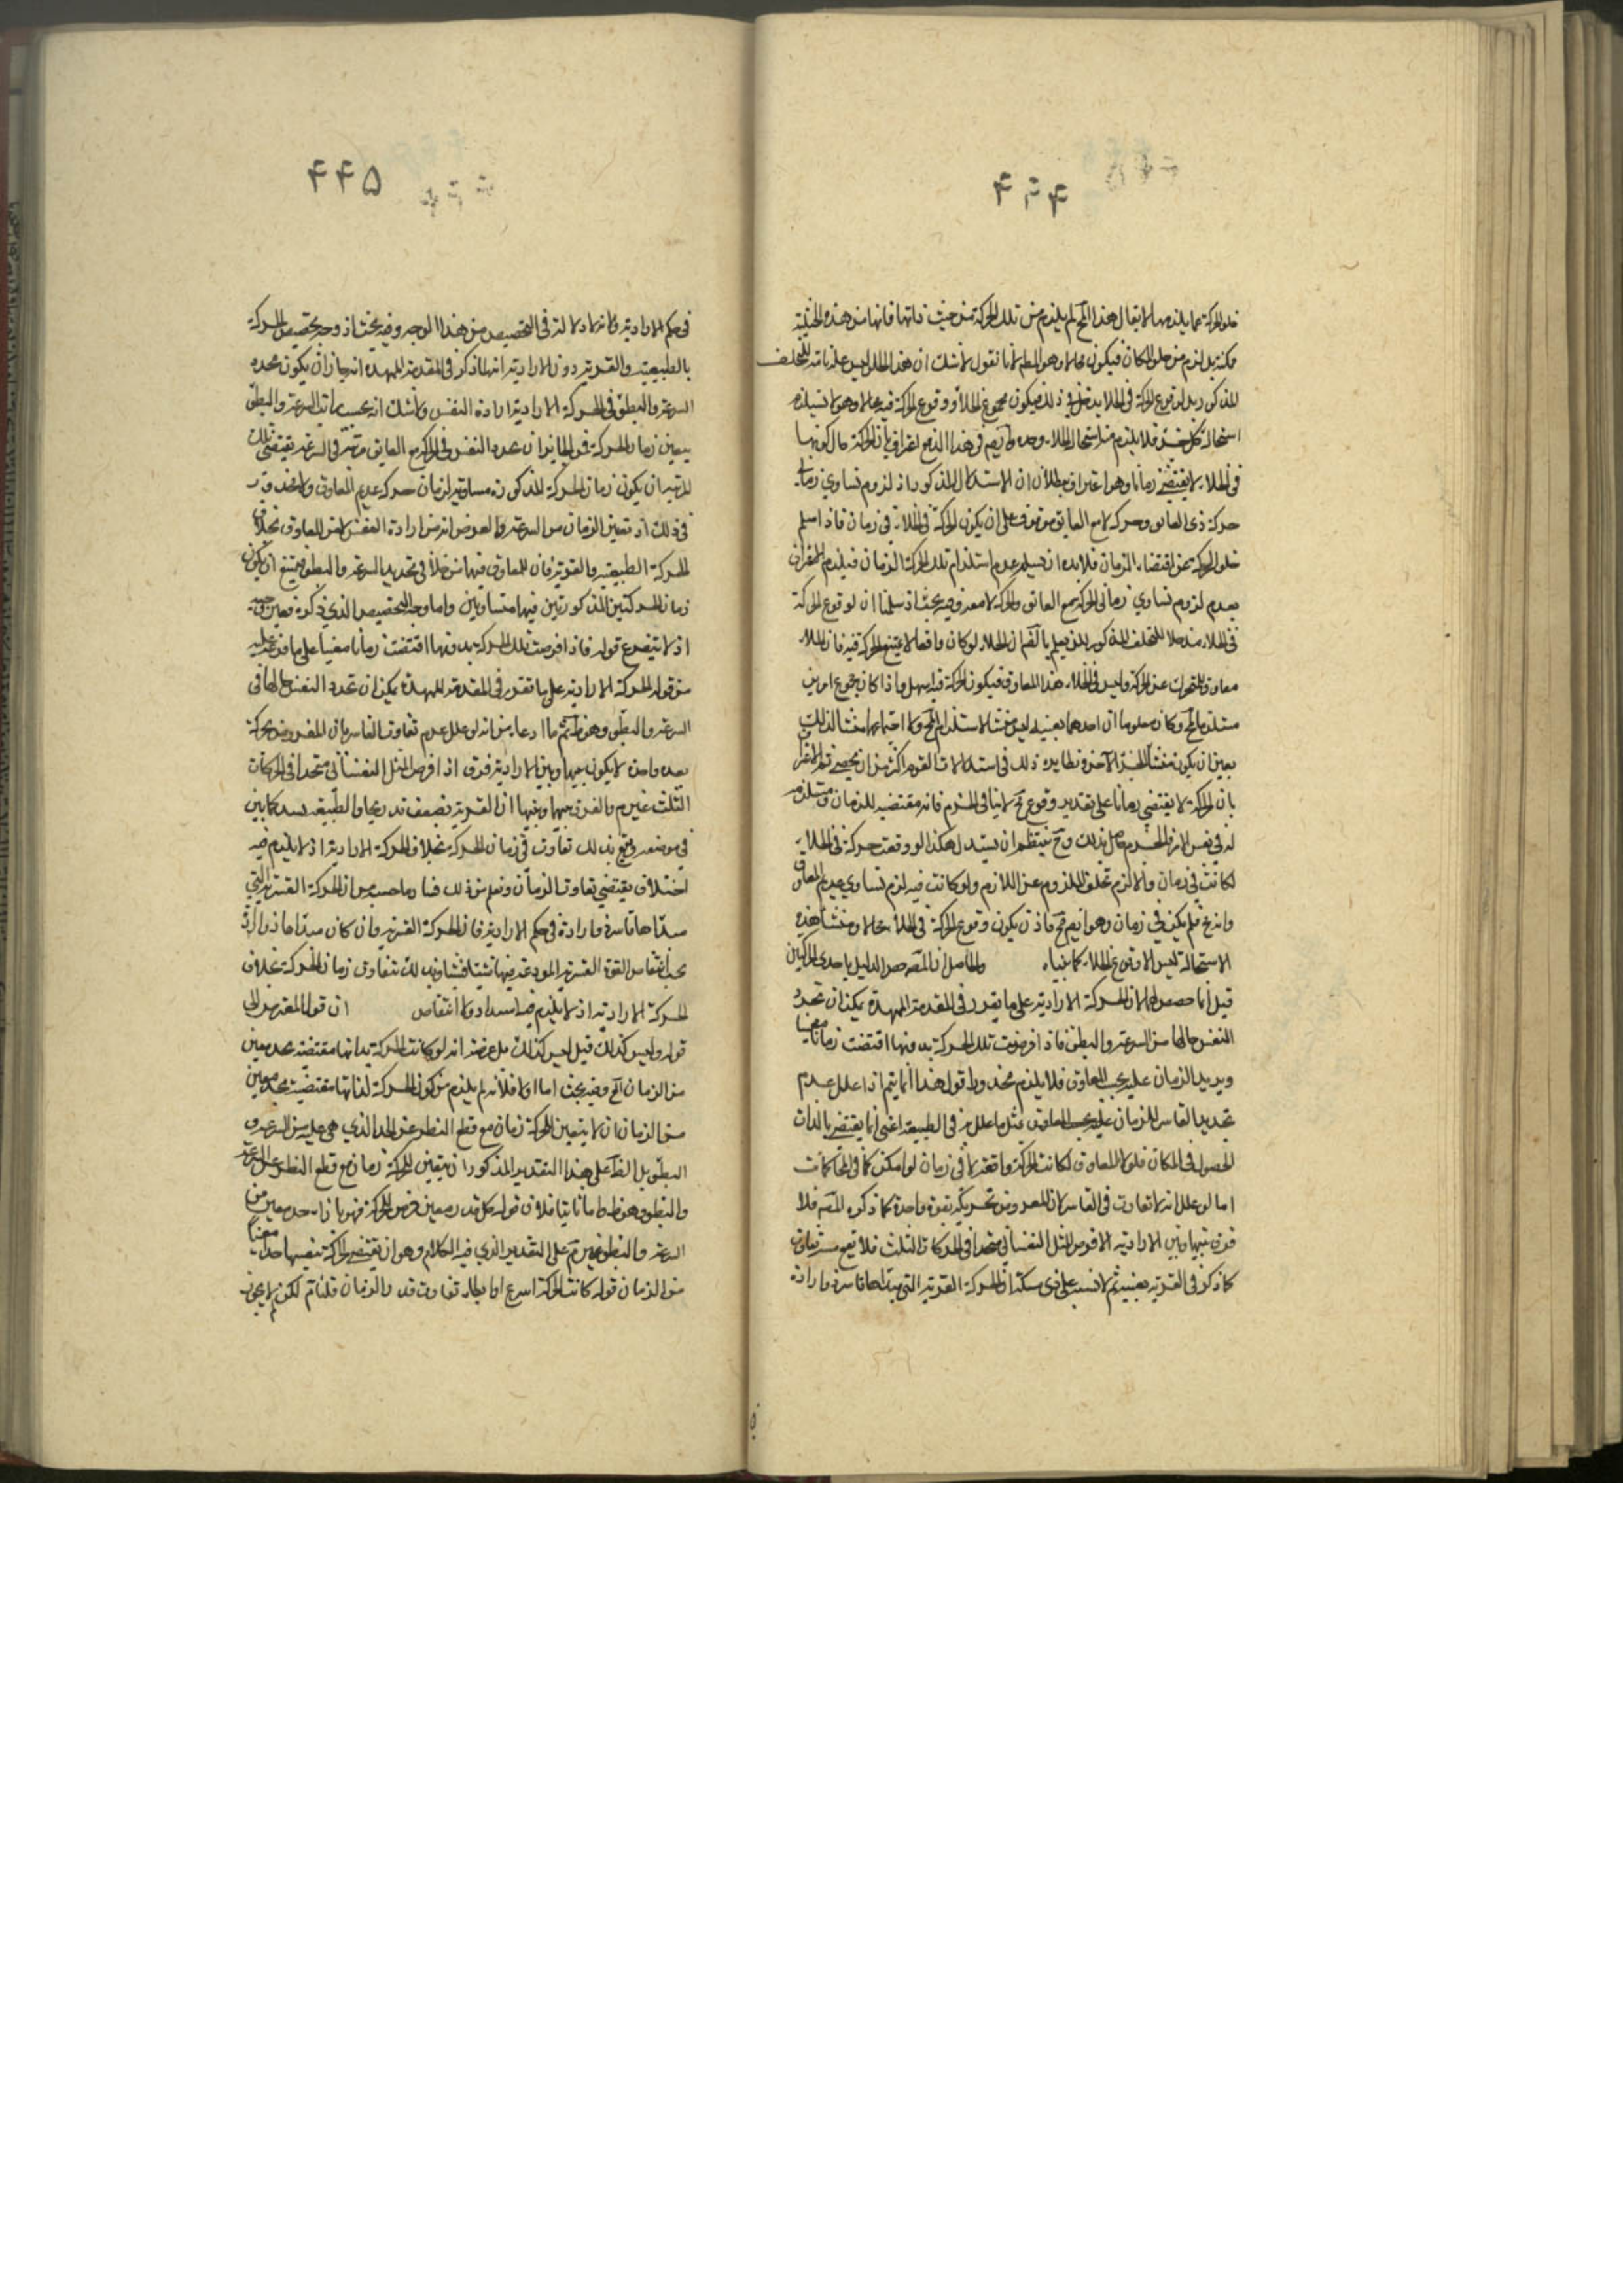 ۴۴۴
خلو الحركة عما يلزمها لا يقال هذا المح لم يلزم من تلك الحركة من حيث ذاتها فانها من هذه الحيثية
ممكنة بل لزم من خلو المكان فيكون محالا وهو المط لانا نقول لا شك ان هذا الخلاء ليس علة تامة للخلف
المذكور بل لوقوع الحركة في الخلاء مدخل في ذلك فيكون مجموع الخلاء و وقوع الحركة فيه محالا وهو لا يستلزم
استحالة كل جزء فلا يلزم منه استحالة الخلاء وحده
في الخلاء لا يقتضي زمانا وهو اعتراف ببطلان الاستدلال المذكور اذ لزوم تساوي زمان
حركة ذي العائق وحركة لا مع العايق موقوف على ان يكون الحركة في الخلاء في زمان فاذا سلم
خلو الحركة عن اقتضاء الزمان فلا بد ان يسلم عدم استلزام تلك الحركة الزمان فيلزم
بعدم لزوم تساوي زماني الحركة مع العائق والحركة لا معه وفيه بحث اذ سلمنا ان لوقوع الحركة
في الخلاء مدخلا للخلف المذكور لكن نعلم ان الخلاء لو كان واقعا لا يمتنع الحركة فيه فان الملاء
معاوق للمتحرك عن الحركة وليس في الخلاء هذا المعاوق فيكون الحركة فيه اسهل واذا كان مجموع امرين
مستلزما لمح وكان معلوما ان احدهما بعينه ليس منشأ لاستلزام المح ولا اجتماعهما منشأ لذلك
تعين ان يكون منشأه الجزء الآخر ونظاير ذلك في استدلالات القوم اكثر من ان يحصى
بان الحركة لا يقتضي زمانا على تقدير وقوع مح لا ينافي الجزم فانه مقتضيه للزمان ومستلزمة
له في نفس الامر والجزم حاصل بذلك وح ينتظم ان يستدل هكذا لو وقعت حركة في الخلاء
لكانت في زمان والا لزم تخلف الملزوم عن اللازم ولو كانت فيه لزم تساوي عديم المعاوق
فلم يكن في زمان وهو ايضا مح فاذن يكون وقوع الحركة في الخلاء محالا ومنشأ هذه
الاستحالة ليس الا وقوع الخلاء كما بيناه والحاصل ان المصنف خص الدليل باحدى الحركتين
قيل انما خصص بهما لان الحركة الارادية على ما يقرر في المقدمة الممهدة يمكن ان تحدد
النفس حالها من السرعة والبطؤ فاذا فرضت تلك الحركة بدونها اقتضت زمانا معينا
ويزيد الزمان عليه بحسب المعاوق فلا يلزم محذور اقول هذا انما يتم اذا علل عدم
تحديد القاسر للزمان بمثل ما علل به في الطبيعة اعني انما يقتضي بالذات
الحصول في المكان فلولا المعاوق لكانت الحركة واقعة لا في زمان لو امكن كما في المحاكمات
اما لو علل انه لا تفاوت في القاسر لان المفروض تحريكه بقوة واحدة كما ذكره المصنف فلا
فرق بينها وبين الارادية اذ فرض الميل النفساني متحدا في الحركات الثلث فلا يقع بسببه تفاوت
كما ذكر في القسرية بعينه ثم لا يشتبه على ذي مسكة ان الحركة القسرية التي مبدأها قاسر ذو ارادة
۴۴۵
في حكم الارادية في التخصيص من هذا الوجه وفيه بحث اذ وجه تخصيص الحركة
بالطبيعية والقسرية دون الارادية انه لما ذكر في المقدمة الممهدة انه جاز ان يكون محدد
السرعة والبطؤ في الحركة الارادية ارادة النفس ولا شك انه بحسب مراتب السرعة والبطؤ
يتعين زمان الحركة فمن الجايز ان تحدد النفس في الحركة مع العايق مرتبة في السرعة يقتضي تلك
المرتبة ان يكون زمان الحركة المذكورة مساويا لزمان حركة عديم المعاوق ولا محذور
في ذلك اذ تعين الزمان من السرعة والمفروض انه من ارادة النفس لا من المعاوق بخلاف
الحركة الطبيعية والقسرية فان للمعاوق فيهما مدخلا في تحديد السرعة والبطؤ فيمتنع ان يكون
زمان الحركتين المذكورتين فيهما متساويين واما وجه التخصيص الذي ذكره فغير موجه
اذ لا يتفرع قوله فاذا فرضت تلك الحركة بدونها اقتضت زمانا معينا على ما فرعه عليه
من قوله الحركة الارادية على ما تقرر في المقدمة الممهدة يمكن ان تحدد النفس حالها في
السرعة والبطؤ وهو ظ ثم ما ادعاه من انه لو علل عدم تفاوت القاسر بان المفروض تحريكه
بقوة واحدة لا يكون بينها وبين الارادية فرق اذا فرض الميل النفساني متحدا في الحركات
الثلث غير م والفرق بينهما ان القسرية تضعف تدريجا والطبيعة
في موضعه ويقع بذلك تفاوت في زمان الحركة بخلاف الحركة الارادية اذ لا يلزم فيه
اختلاف يقتضي تفاوت الزمان ونعلم من ذلك فساد ما حسبه من ان الحركة القسرية التي
مبدأها قاسر ذو ارادة في حكم الارادية فان الحركة القسرية وان كان مبدأها ذو ارادة
يجب انتقاص القوة القسرية المودعة فيها شيئا فشيئا وبذلك يتفاوت زمان الحركة بخلاف
الحركة الارادية اذ لا يلزم فيه اشتداد ولا انتقاص
قوله وليس كذلك قيل ليس كذلك بل غرضه انه لو كانت الحركة بذاتها مقتضية بحد معين
من الزمان الخ وفيه بحث اما اولا فلانه لم يلزم من كون الحركة لذاتها مقتضية بحد معين
من الزمان ان لا يتعين للحركة زمان مع قطع النظر عن الحد الذي هي عليه من السرعة و
البطؤ بل الظ على هذا التقدير المذكور ان يتعين للحركة زمان مع قطع النظر عن السرعة
والبطؤ وهو ظ واما ثانيا فلان قوله كل قدر معين فرض للحركة فهو بازاء حد معين من
السرعة والبطؤ غير م على التقدير الذي فيه الكلام وهو ان يقتضي الحركة بنفسها حدا معينا
من الزمان قوله كانت الحركة اسرع او ابطأ تفاوت قدر الزمان قلنا م لكن لم لا يجوز